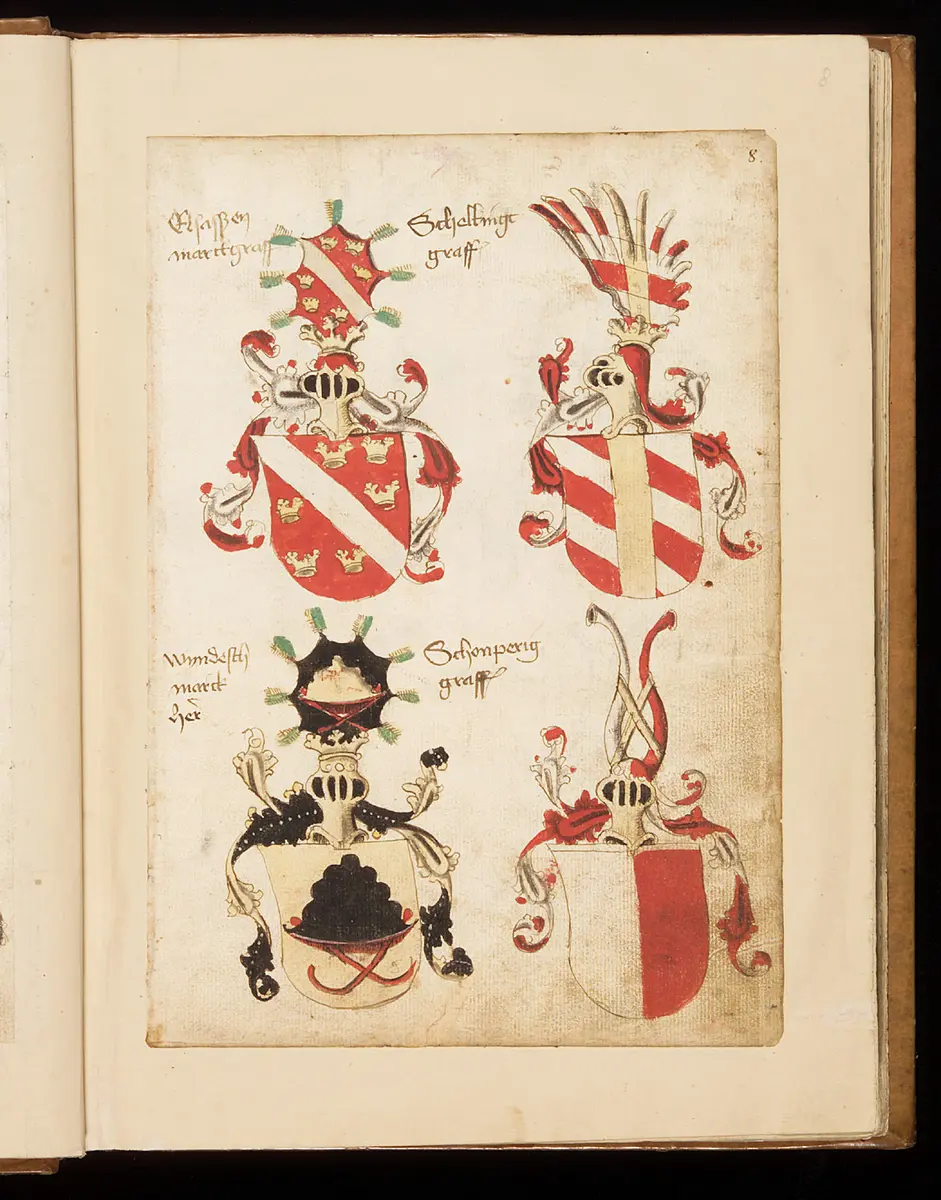 8
8.
Elsassen
marckgraff
Scheltingt
graff
Wyndesch
marck
her
Schonperig
graff